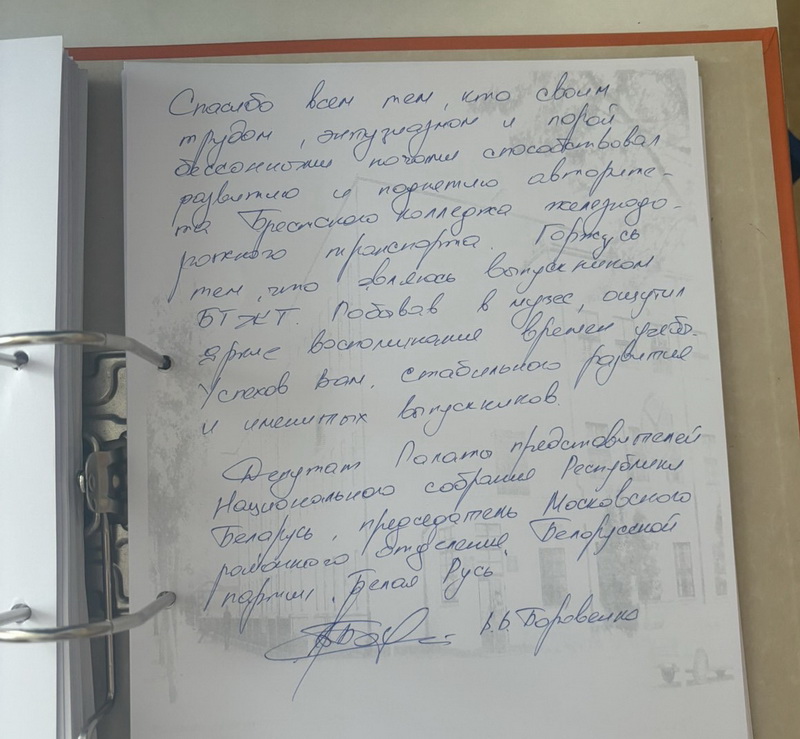 Спасибо всем тем, кто своим
трудом, энтузиазмом и порой
бессонными ночами способствовал
развитию и поднятию авторите-
та Брестского колледжа железнодо-
рожного транспорта. Горжусь
тем, что являюсь выпускником
БТЖТ. Побывав в музее, ощутил
яркие воспоминания времен учебы.
Успехов Вам, стабильного развития
и именитых выпускников.
Депутат Палаты представителей
Национального собрания Республики
Беларусь, председатель Московского
районного отделения Белорусской
партии "Белая Русь"
В.В. Боровенко